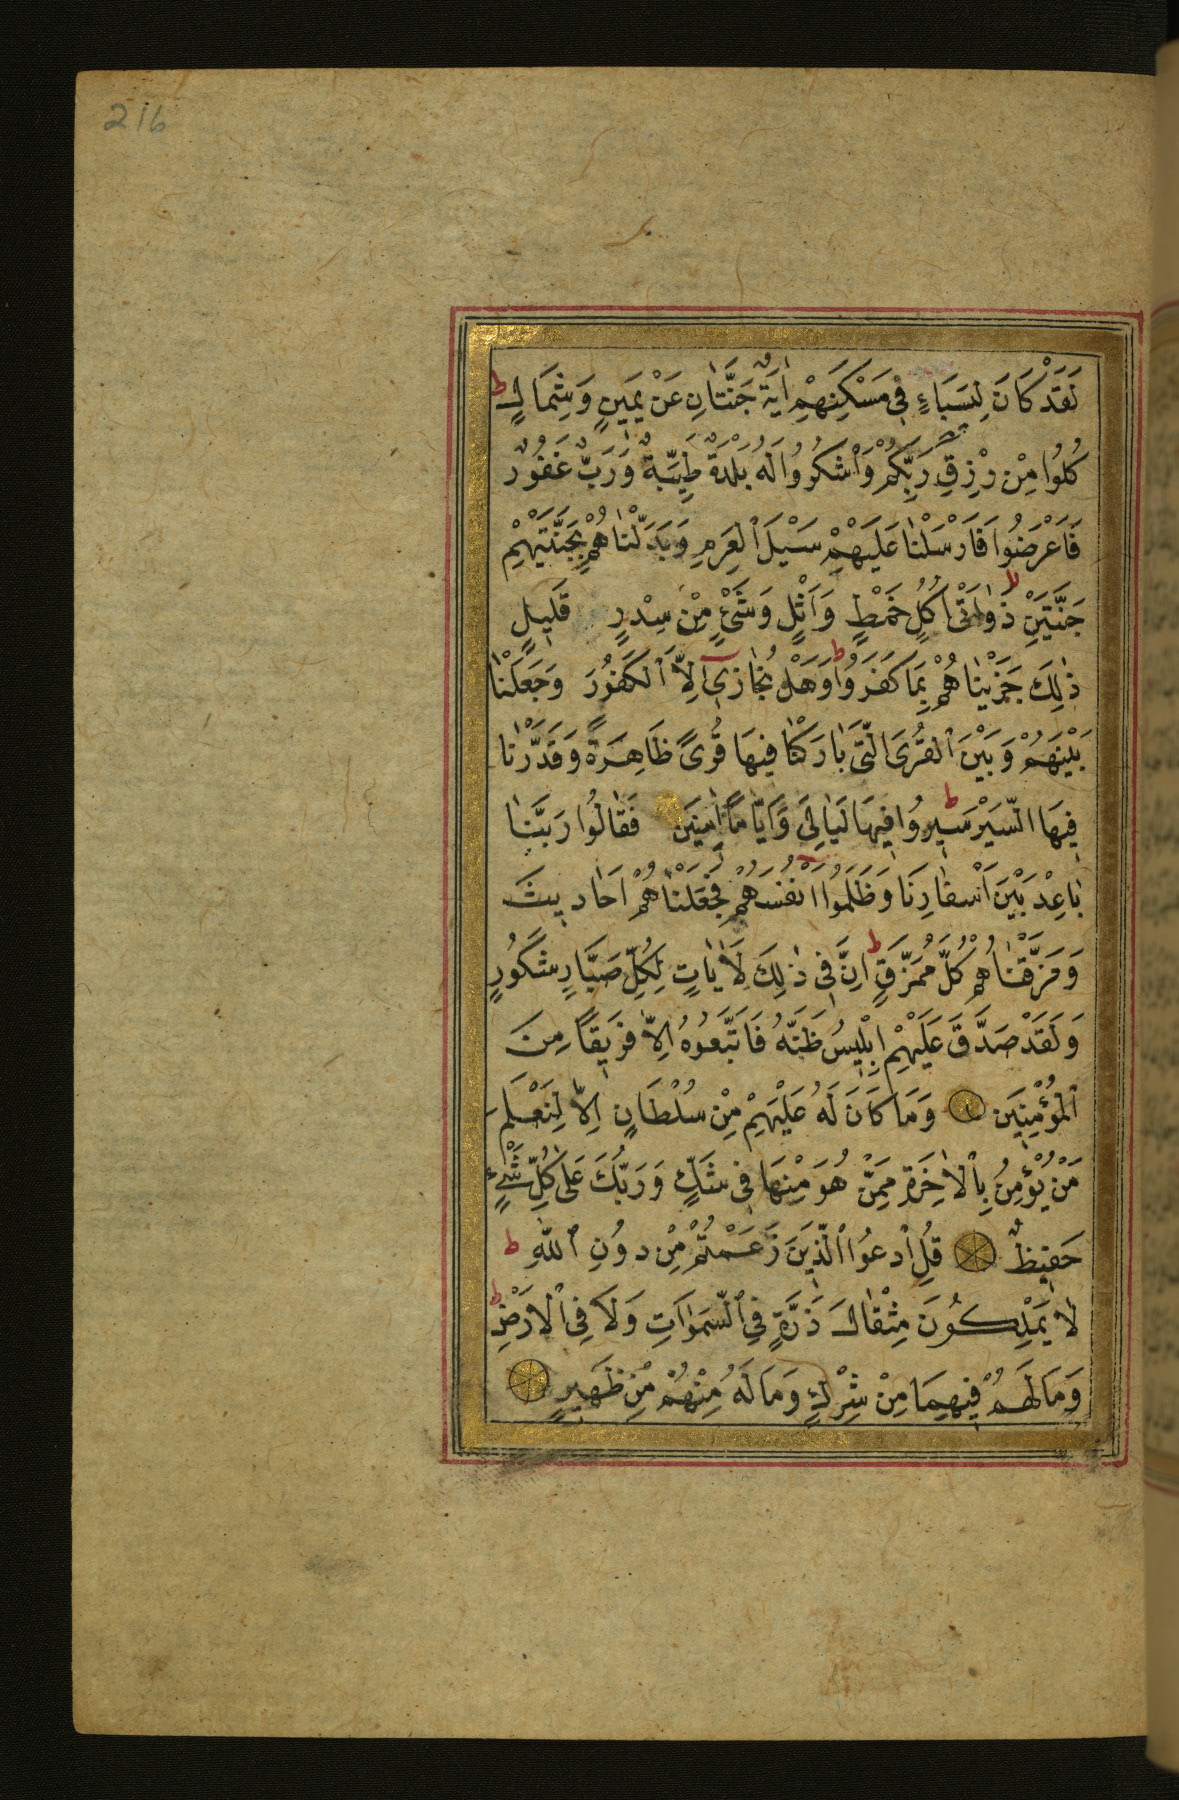 216
لَقَدْ كَانَ لِسَبَاءٍ فِى مَسْكَنِهِمْ اٰيَةٌ جَنَّتَانِ عَنْ يَمِينٍ وَشِمَالٍ ط
كُلُوا مِنْ رِزْقِ رَبِّكُمْ وَاشْكُرُوا لَهُ بَلْدَةٌ طَيِّبَةٌ وَرَبٌّ غَفُورٌ
فَاَعْرَضُوا فَاَرْسَلْنَا عَلَيْهِمْ سَيْلَ الْعَرِمِ وَبَدَّلْنَاهُمْ بِجَنَّتَيْهِمْ
جَنَّتَيْنِ ذَوَاتَىْ اُكُلٍ خَمْطٍ وَاَثْلٍ وَشَىْءٍ مِنْ سِدْرٍ قَلِيلٍ
ذٰلِكَ جَزَيْنَاهُمْ بِمَا كَفَرُوا ط وَهَلْ نُجَازِى اِلَّا الْكَفُورَ وَجَعَلْنَا
بَيْنَهُمْ وَبَيْنَ الْقُرَى الَّتِى بَارَكْنَا فِيهَا قُرًى ظَاهِرَةً وَقَدَّرْنَا
فِيهَا السَّيْرَ ط سِيرُوا فِيهَا لَيَالِىَ وَاَيَّامًا اٰمِنِينَ فَقَالُوا رَبَّنَا
بَاعِدْ بَيْنَ اَسْفَارِنَا وَظَلَمُوا اَنْفُسَهُمْ فَجَعَلْنَاهُمْ اَحَادِيثَ
وَمَزَّقْنَاهُمْ كُلَّ مُمَزَّقٍ ط اِنَّ فِى ذٰلِكَ لَاٰيَاتٍ لِكُلِّ صَبَّارٍ شَكُورٍ
وَلَقَدْ صَدَّقَ عَلَيْهِمْ اِبْلِيسُ ظَنَّهُ فَاتَّبَعُوهُ اِلَّا فَرِيقًا مِنَ
الْمُؤْمِنِينَ وَمَا كَانَ لَهُ عَلَيْهِمْ مِنْ سُلْطَانٍ اِلَّا لِنَعْلَمَ
مَنْ يُؤْمِنُ بِالْاٰخِرَةِ مِمَّنْ هُوَ مِنْهَا فِى شَكٍّ وَرَبُّكَ عَلٰى كُلِّ شَىْءٍ
حَفِيظٌ قُلِ ادْعُوا الَّذِينَ زَعَمْتُمْ مِنْ دُونِ اللّٰهِ ط
لَا يَمْلِكُونَ مِثْقَالَ ذَرَّةٍ فِى السَّمٰوَاتِ وَلَا فِى الْاَرْضِ ط
وَمَا لَهُمْ فِيهِمَا مِنْ شِرْكٍ وَمَا لَهُ مِنْهُمْ مِنْ ظَهِيرٍ